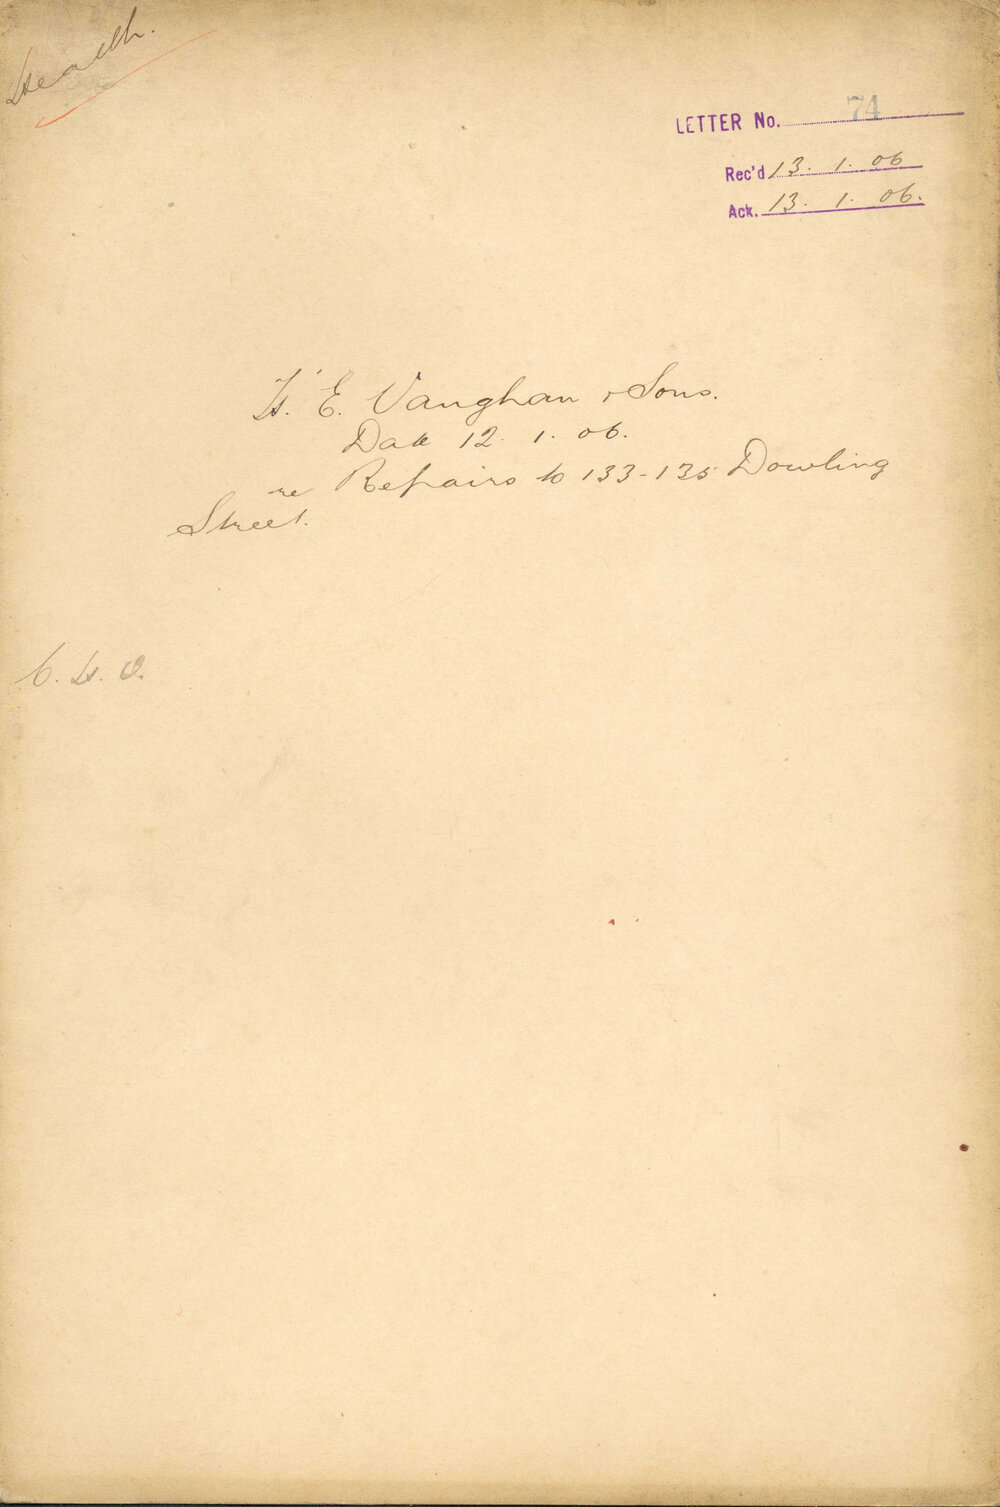 Health.
LETTER No. 74
Rec'd 13. 1. 06
Ack. 13. 1. 06.
H. E. Vaughan & Sons.
Date 12. 1. 06.
re Repairs to 133-135 Dowling
Street.
C. H. O.